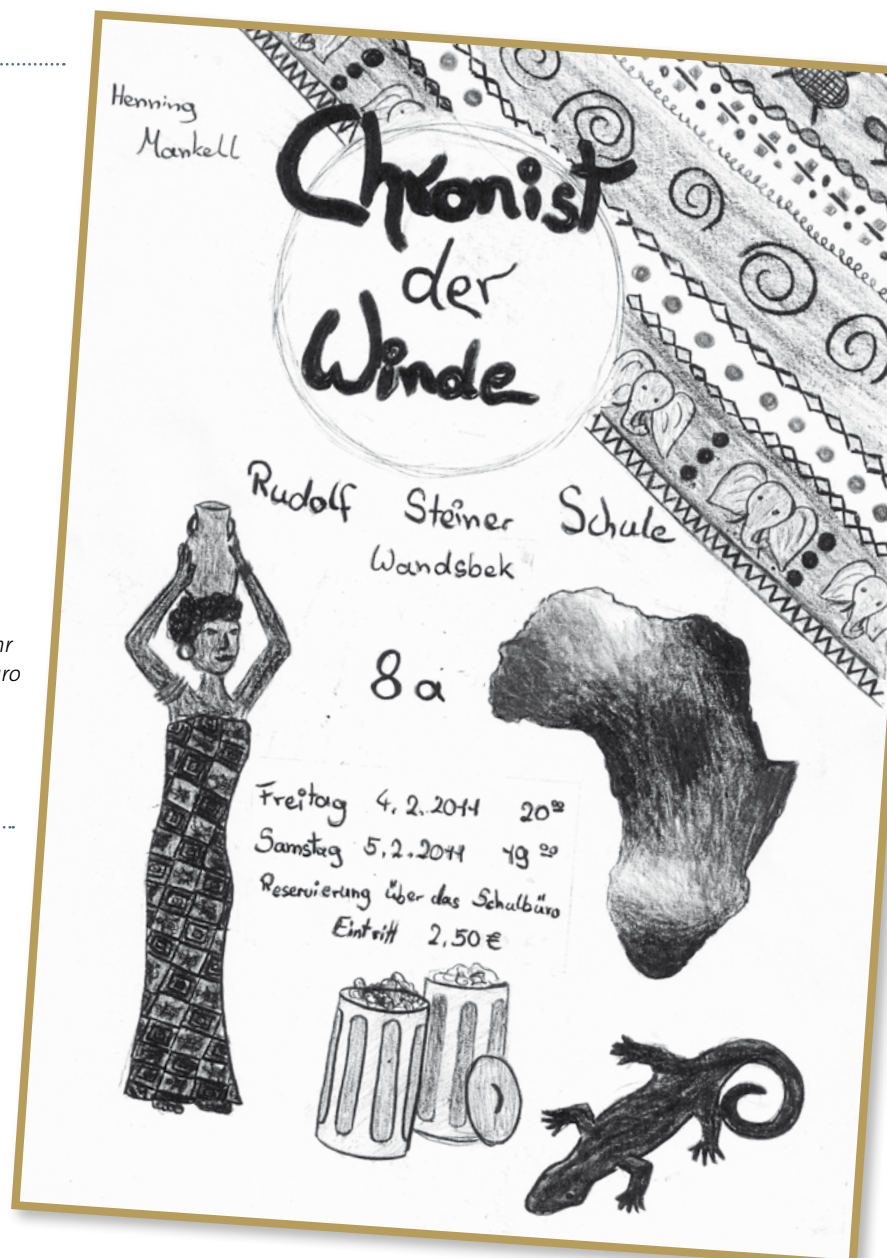 Henning
Mankell
Chronist
der
Winde
Rudolf Steiner Schule
Wandsbek
8a
Freitag 4.2.2011 20⁰⁰
Samstag 5.2.2011 19⁰⁰
Reservierung über das Schulbüro
Eintritt 2,50 €